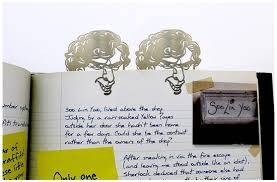 Soo Lin Yao, lived above the shop.
Judging by a rain-soaked Yellow Pages
outside her door she hadn't been home
for a few days. Could she be the contact
rather than the owners of the shop?
After sneaking in via the fire escape
(and leaving me stood outside like an idiot),
Sherlock deduced that someone else had
Only one
Soo Lin Yao